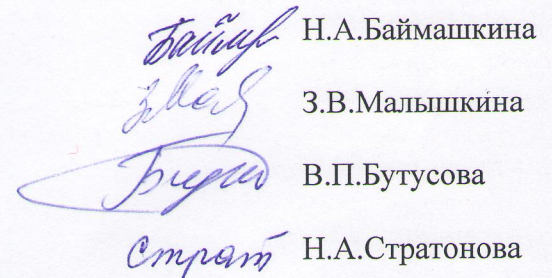 Байм Н.А.Баймашкина
ЗМал З.В.Малышкина
В.П.Бутусова
Страт Н.А.Стратонова